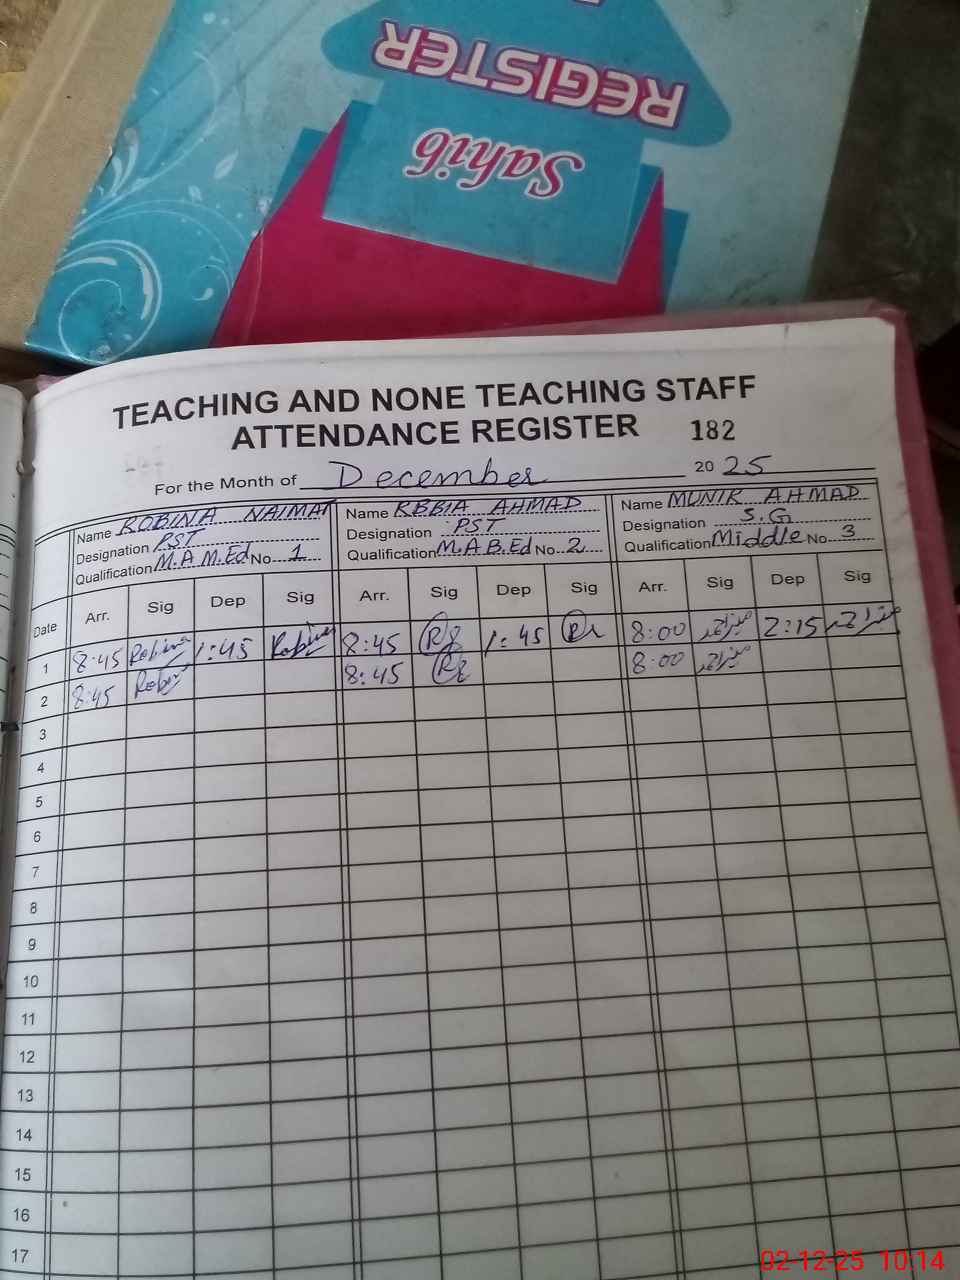 REGISTER
Sahib
TEACHING AND NONE TEACHING STAFF
ATTENDANCE REGISTER 182
For the Month of December 2025
Name ROBINA NAIMAT Name RBBIA AHMAD Name MUNIR AHMAD
Designation PST Designation PST Designation S.G
Qualification M.A M.Ed No 1 Qualification M.A B.Ed No 2 Qualification Middle No 3
Date Arr. Sig Dep Sig Arr. Sig Dep Sig Arr. Sig Dep Sig
1 8:45 Robina 1:45 Robina 8:45 1:45 8:00 منیر احمد 2:15 منیر احمد
2 8:45 Robina 8:45 8:00 منیر احمد
3
4
5
6
7
8
9
10
11
12
13
14
15
16
17
02-12-25 10:14